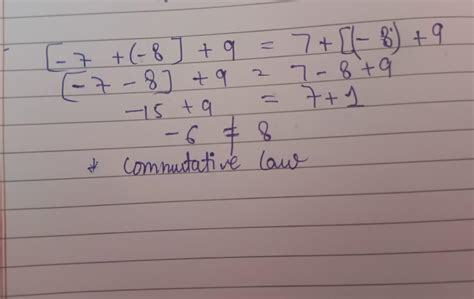 [-7 +(-8] + 9 = 7+[(-8) + 9
[-7 - 8] + 9 = 7 - 8 + 9
-15 + 9 = 7+1
-6 ≠ 8
* Commutative law